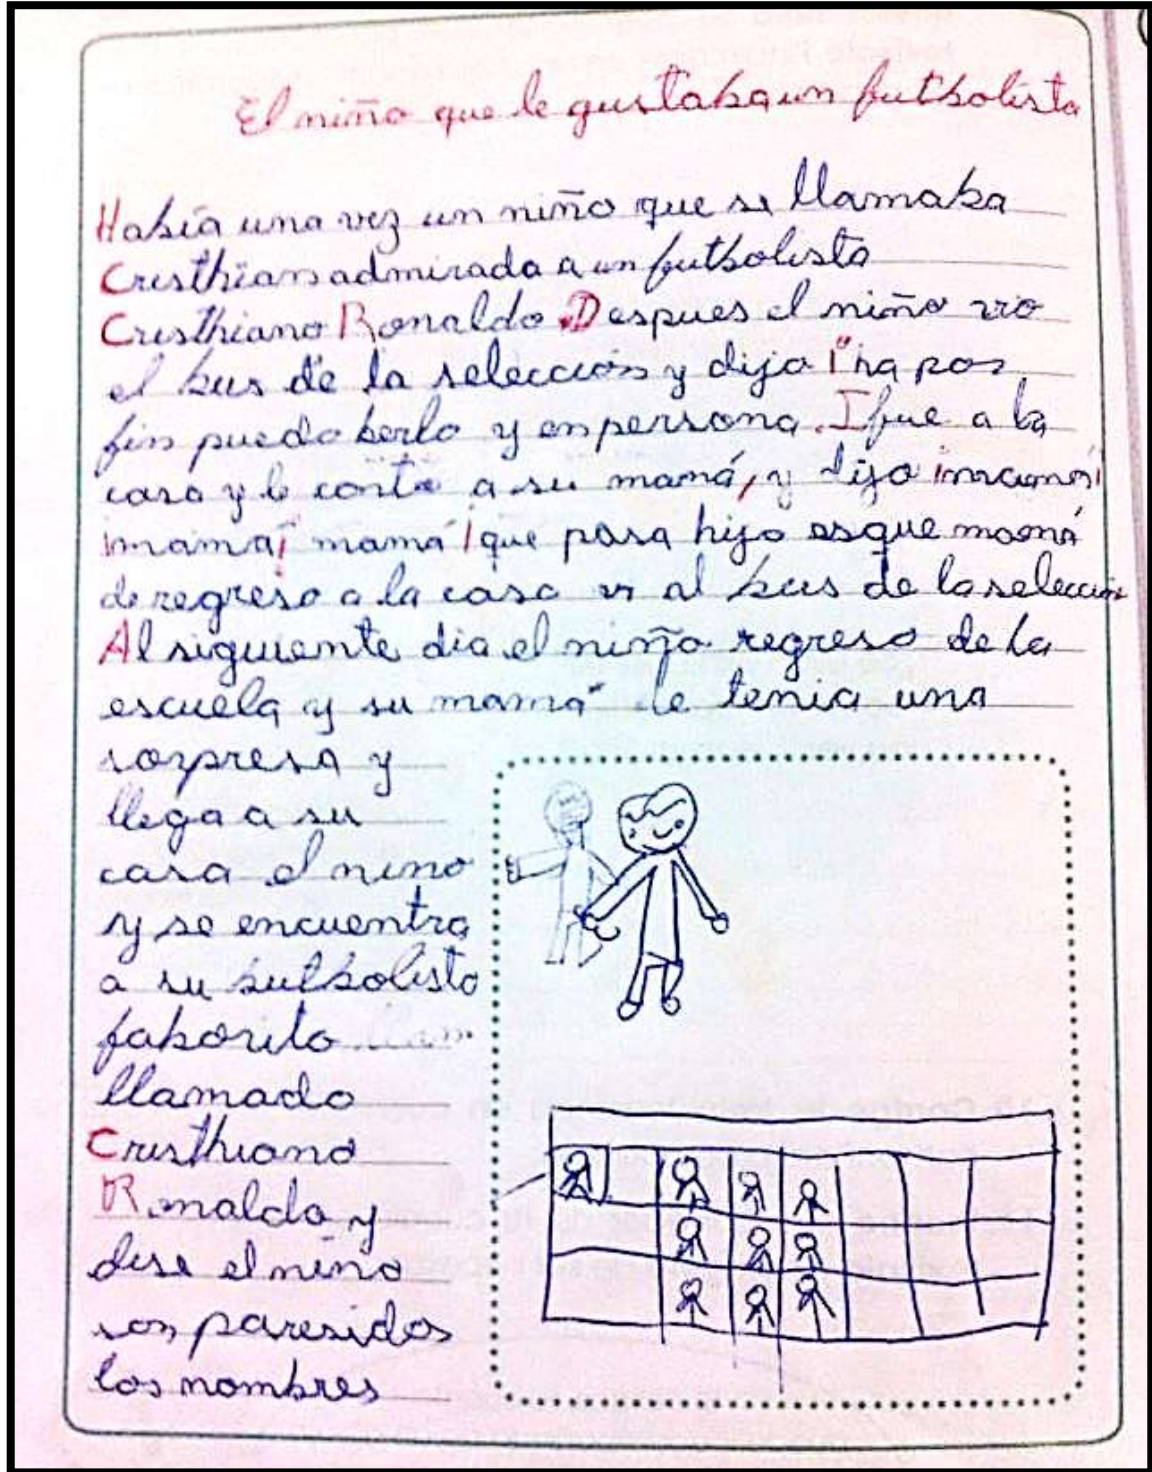 El niño que le gustaba un futbolista
Había una vez un niño que se llamaba
Cristhian admirada a un futbolista
Cristhiano Ronaldo. Despues el niño vio
el bus de la selección y dijo por
fin puedo berlo y en persona. I fue a la
casa y le conto a su mamá, y dijo ¡mamá!
¡mamá! mamá! que pasa hijo esque mamá
de regreso a la casa vi al bus de la selección
Al siguiente dia el niño regreso de la
escuela y su mamá le tenia una
sorpresa y
llega a su
casa el nino
y se encuentra
a su butbolista
faborito
llamado
Cristhiano
Ronaldo y
dise el niño
son paresidos
los nombres